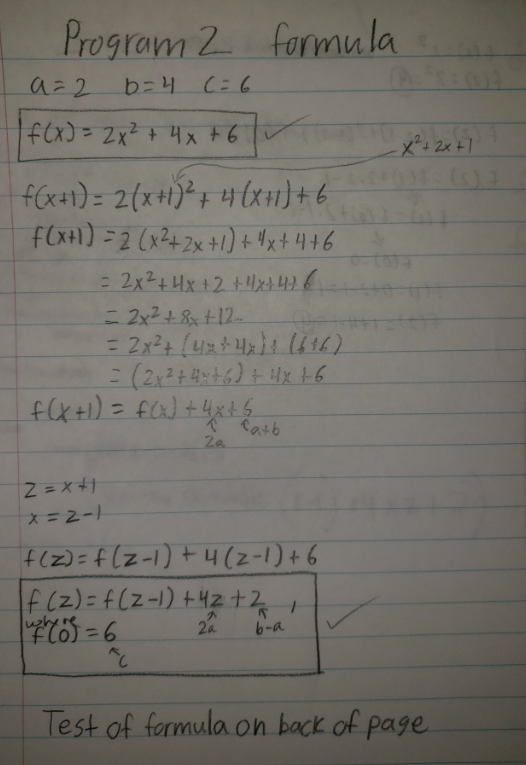 Program 2 formula
a=2 b=4 c=6
f(x) = 2x² + 4x + 6
x²+2x+1
f(x+1) = 2(x+1)² + 4(x+1) + 6
f(x+1) = 2(x²+2x+1) + 4x + 4 + 6
= 2x² + 4x + 2 + 4x + 4 + 6
= 2x² + 8x + 12
= 2x² + (4x + 4x) + (6+6)
= (2x² + 4x + 6) + 4x + 6
f(x+1) = f(x) + 4x + 6
2a a+b
z = x+1
x = z-1
f(z) = f(z-1) + 4(z-1) + 6
f(z) = f(z-1) + 4z + 2,
where
f(0) = 6 2a b-a
c
Test of formula on back of page